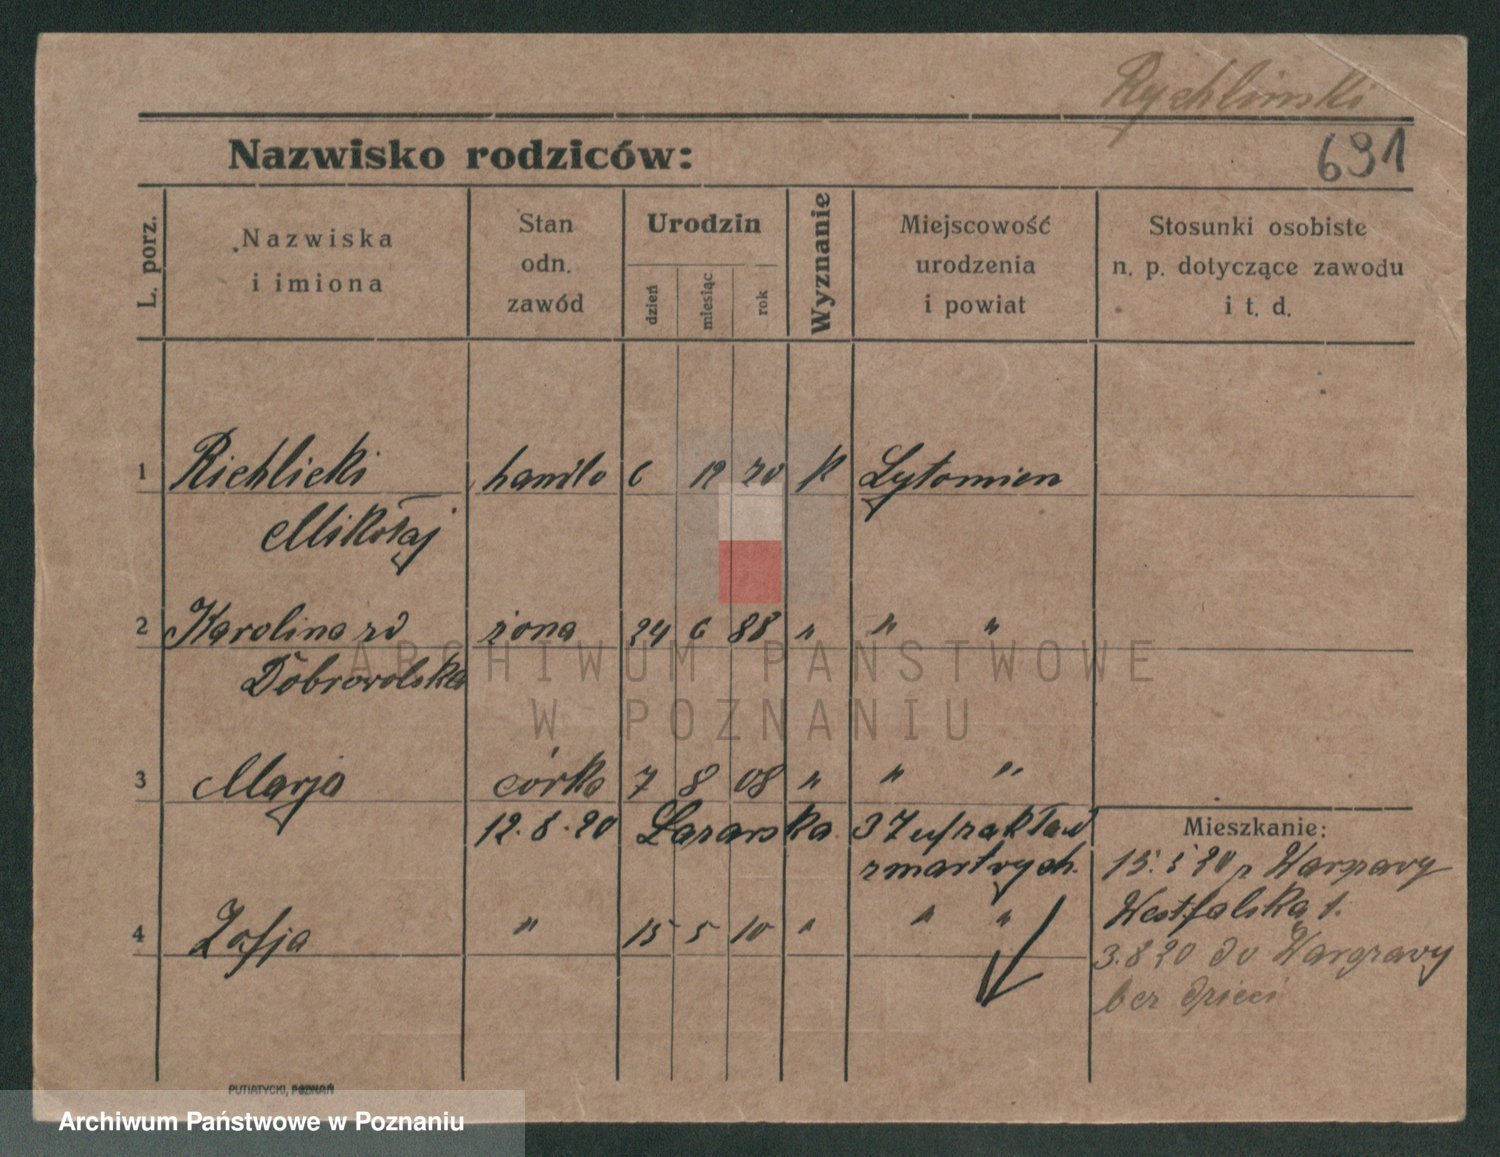 Rychlinski
Nazwisko rodziców:
691
L. porz.
Nazwiska
i imiona
Stan
odn.
zawód
Urodzin
dzień
miesiąc
rok
Wyznanie
Miejscowość
urodzenia
i powiat
Stosunki osobiste
n. p. dotyczące zawodu
i t. d.
1 Richlicki 6 12 K
Mikołaj
2 Karolina zd żona 24 6 88 " " "
Dobrowolska
3 Marja córka 7 8 08 " " "
12.8.20 37
zmartwych.
4 Zofja " 15 5 10 " " "
Mieszkanie:
15.5 20 z Warszawy
Westfalska 1.
3.8 20 do Warszawy
bez dzieci
ARCHIWUM PAŃSTWOWE
W POZNANIU
PUTIATYCKI, POZNAŃ
Archiwum Państwowe w Poznaniu